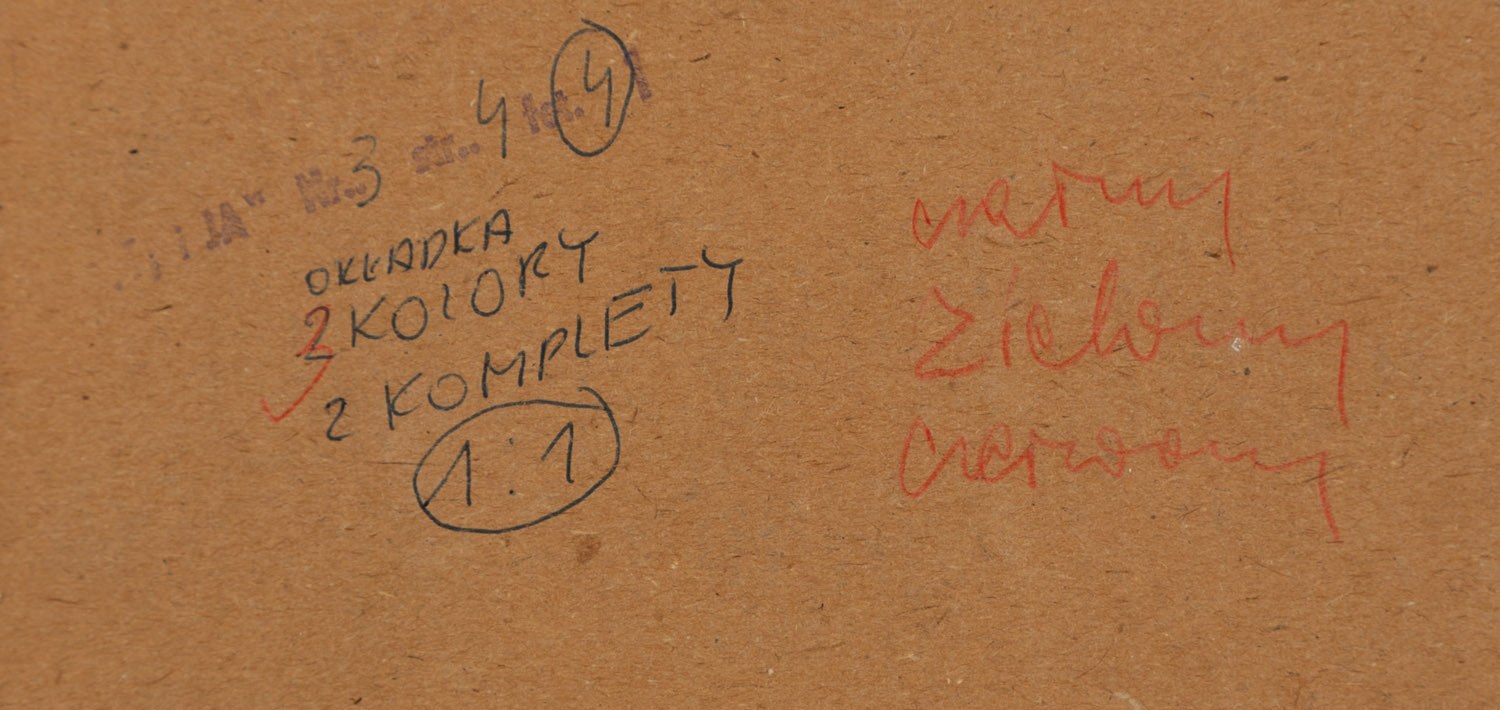 JA" Nr.. 3 str.. 4 fot. 4
OKŁADKA
3 KOLORY
2 KOMPLETY
1:1
czarny
zielony
czerwony